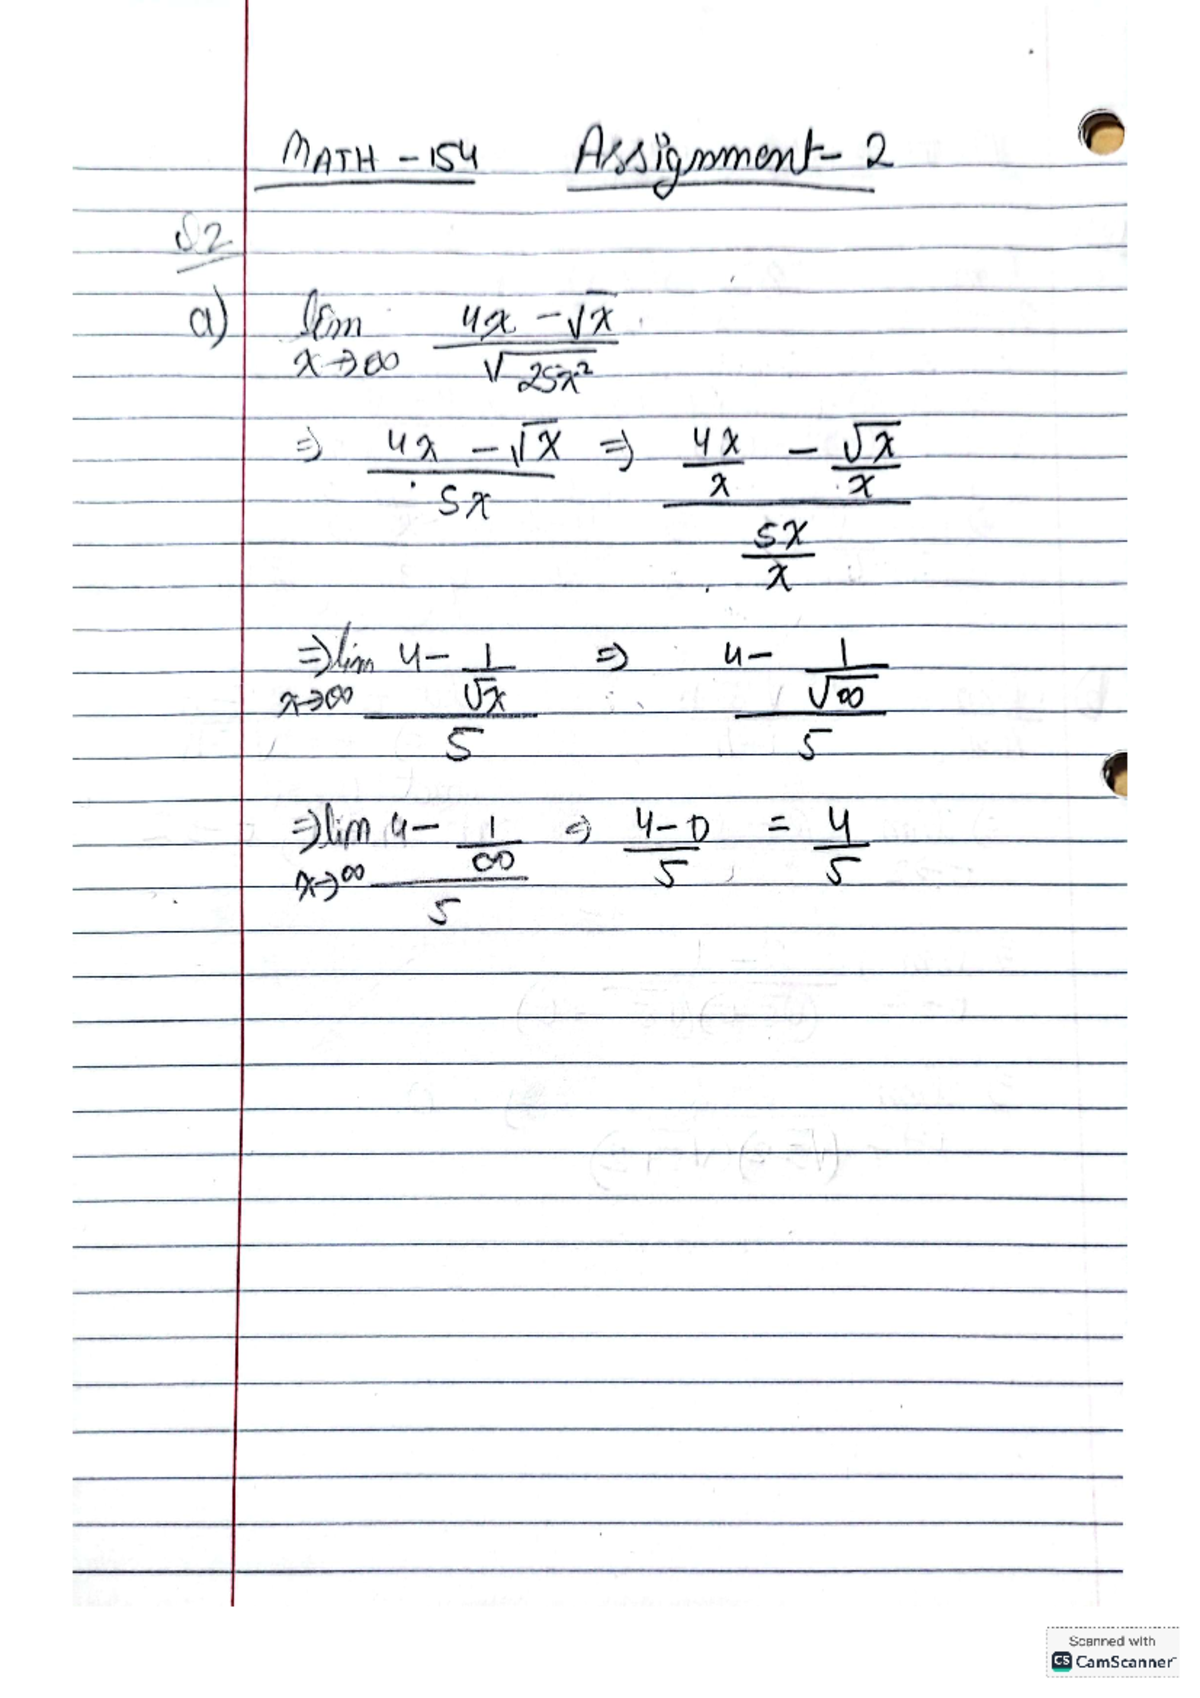 MATH - 154 Assignment - 2
Q2
a) lim x→∞ (4x - √x) / √(25x²)
⇒ (4x - √x) / 5x ⇒ (4x/x - √x/x) / (5x/x)
⇒ lim x→∞ (4 - 1/√x) / 5 ⇒ (4 - 1/√∞) / 5
⇒ lim x→∞ (4 - 1/∞) / 5 ⇒ (4-0) / 5 = 4/5
Scanned with
CS CamScanner